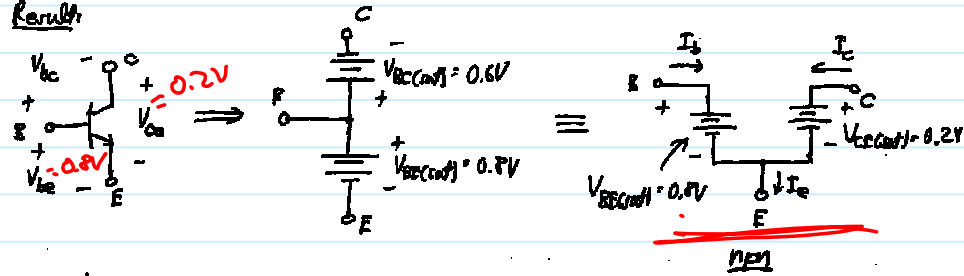 Result:
C
V_bc - C
+ + = 0.2V
B V_ce
+ -
V_be = 0.8V
- E
⇒
-
V_BC(sat) = 0.6V
B +
+
V_BE(sat) = 0.8V
-
E
≡
I_b I_c
B C
+ +
- - V_CE(sat) = 0.2V
V_BE(sat) = 0.8V
↓ I_e
E
npn